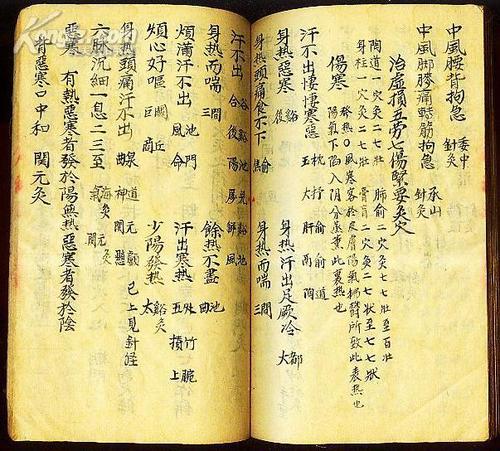 中風腰背拘急 針灸 委中
中風脚膝痛轉筋拘急 針灸 承山
治虛損五勞七傷緊要灸穴
陶道一穴灸二七壯 肺俞二穴灸七七壯至百壯
身柱一穴灸二七壯 膏肓二穴灸二七壯至七七壯
傷寒 發熱 風寒客於皮膚陽氣拂鬱所致此表熱也
陽氣下陷入陰分蒸熏此裏熱也
汗不出悽悽寒惡 玉枕 大杼 肝俞 膈俞 陶道
身熱惡寒 後谿 身熱汗出足厥冷 大都
身熱頭痛食不下 三焦俞 身熱而喘 三間
汗不出 合谷 後谿 陽池 厲兌 解谿 風池
身熱而喘 三間 餘熱不盡 曲池
煩滿汗不出 風池 命門 汗出寒熱 五處 攢竹 上脘
煩心好嘔 巨闕 商丘 少陽發熱 太谿灸
身熱頭痛汗不出 曲泉 神道 關元 懸顱 已上見針經
六脉沉細一息二三至 氣海灸 關元灸
惡寒 有熱惡寒者發於陽無熱惡寒者發於陰
背惡寒口中和 關元灸